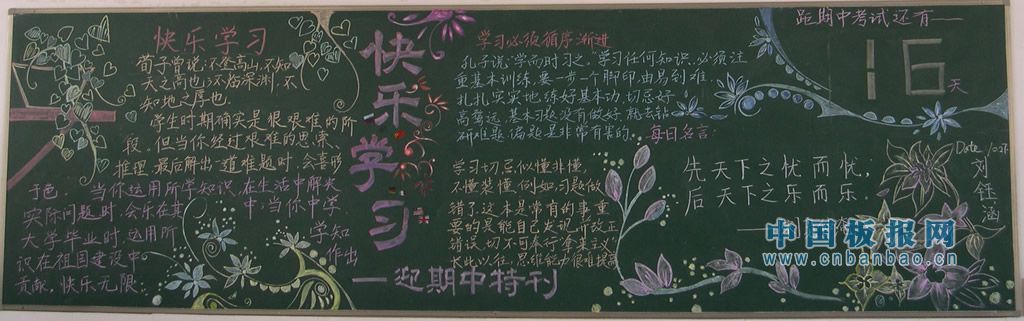 快乐学习
荀子曾说:不登高山,不知
天之高也;不临深渊,不
知地之厚也.
学生时期确实是很艰难的阶
段.但当你经过艰难的思索、
推理,最后解出一道难题时,会喜形
于色.当你运用所学知识,在生活中解决
实际问题时,会乐在其中;当你中学、
大学毕业时,运用所学知
识在祖国建设中作出
贡献,快乐无限.
快乐学习
—迎期中特刊
学习必须循序渐进
孔子说:"学而时习之."学习任何知识,必须注
重基本训练,要一步一个脚印,由易到难,
扎扎实实地练好基本功,切忌好
高骛远,基本习题没有做好,就去钻
研难题、偏题是非常有害的.
学习切忌似懂非懂,
不懂装懂.例如,习题做
错了,这本是常有的事,重
要的是能自己发现并改正
错误,切不可奉行"拿来主义"
长此以往,思维能力很难提高
每日名言:
先天下之忧而忧;
后天下之乐而乐.
距期中考试还有——
16天
Date
刘钰涵
中国板报网
www.cnbanbao.cn